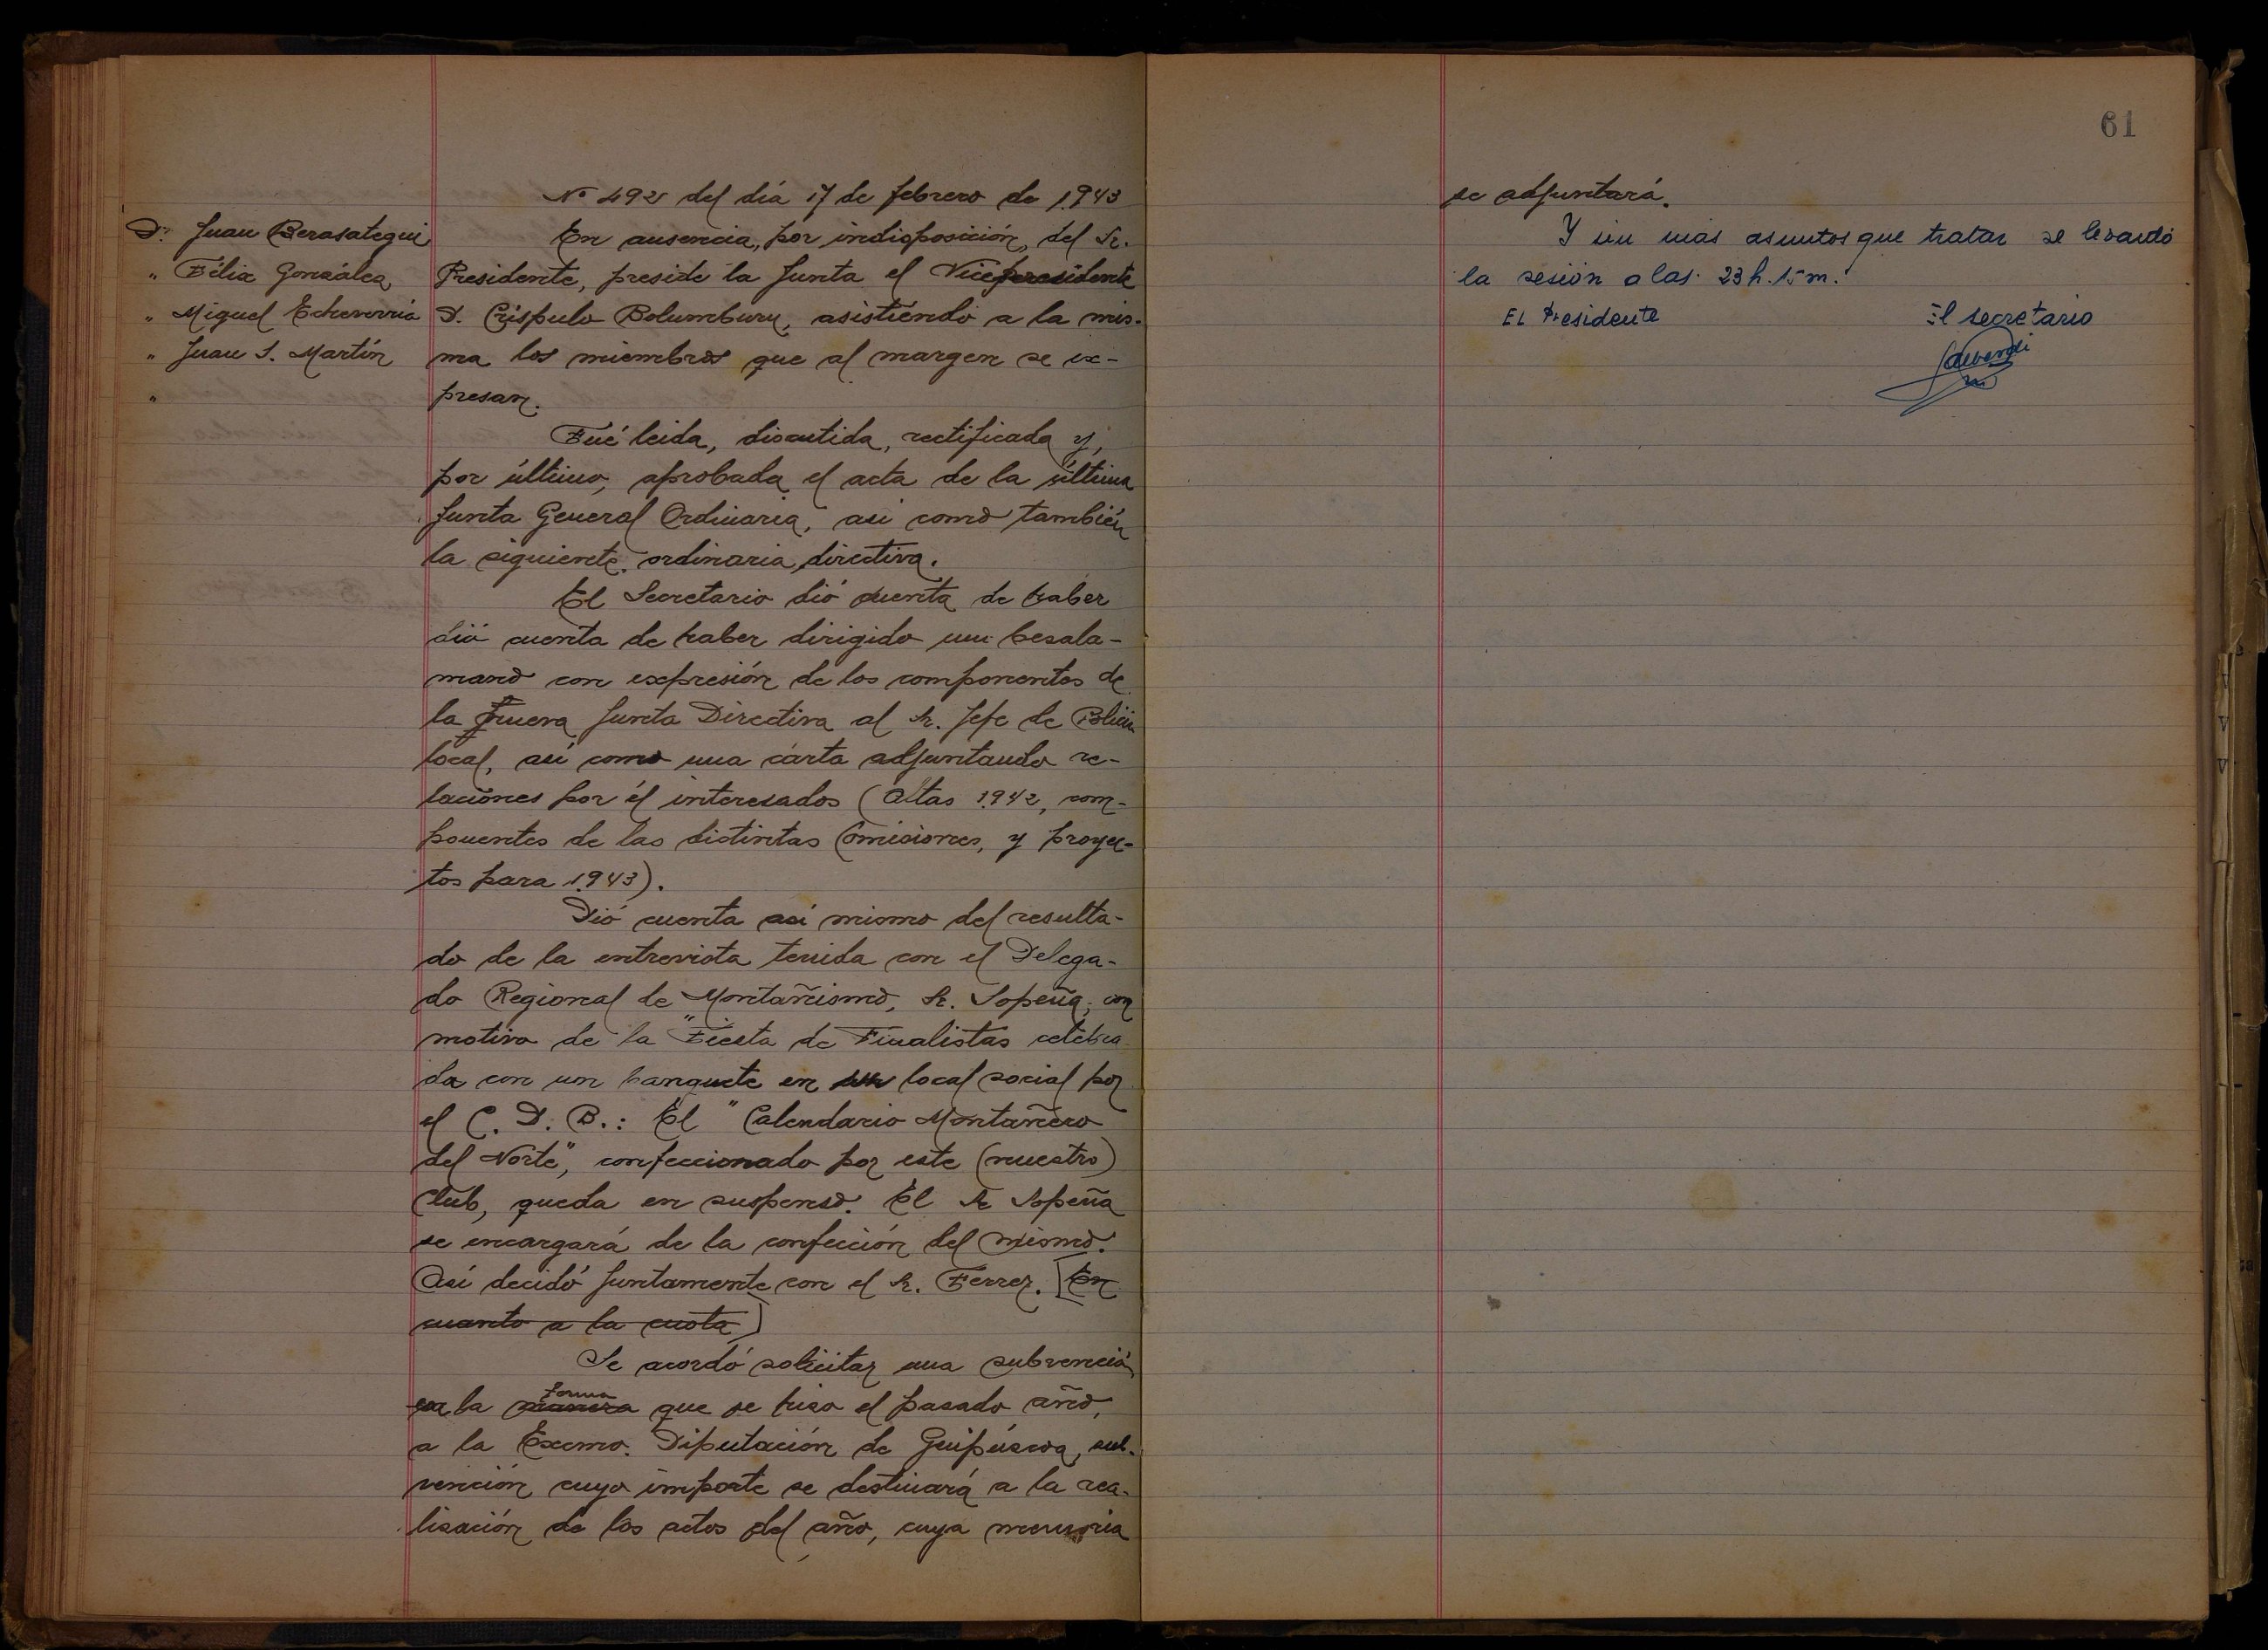 Nº 492 del día 17 de febrero de 1.943
D. Juan Berasategui
" Félix González
" Miguel Echeverría
" Juan S. Martín
"
En ausencia, por indisposición, del Sr.
Presidente, preside la Junta el Vicepresidente
D. Críspulo Bolumburu, asistiendo a la mis-
ma los miembros que al margen se ex-
presan.
Fué leida, discutida, rectificada y,
por último, aprobada el acta de la última
Junta General Ordinaria, asi como también
la siguiente ordinaria directiva.
El Secretario dió cuenta de haber
dió cuenta de haber dirigido un besala-
mano con expresión de los componentes de
la nueva Junta Directiva al Sr. Jefe de Policía
local, así como una carta adjuntando re-
laciones por él interesados (Altas 1.942, com-
ponentes de las distintas Comisiones, y proyec-
tos para 1.943).
Dió cuenta así mismo del resulta-
do de la entrevista tenida con el Delega-
do Regional de Montañismo, Sr. Sopeña, con
motivo de la "Fiesta de Finalistas celebra
da con un banquete en su local social por
el C. D. B.: El "Calendario Montañero
del Norte", confeccionado por este (nuestro)
Club, queda en suspenso. El Sr Sopeña
se encargará de la confección del mismo.
Así decidó juntamente con el Sr. Ferrer. [En
cuanto a la cuota]
Se acordó solicitar una subvención
en la manera forma que se hizo el pasado año,
a la Excmo. Diputación de Guipúzcoa, sub-
vención cuyo importe se destinará a la rea-
lización de los actos del año, cuya memoria
61
se adjuntará.
Y sin más asuntos que tratar se levantó
la sesión a las 23 h. 15 m.
EL Presidente
El secretario